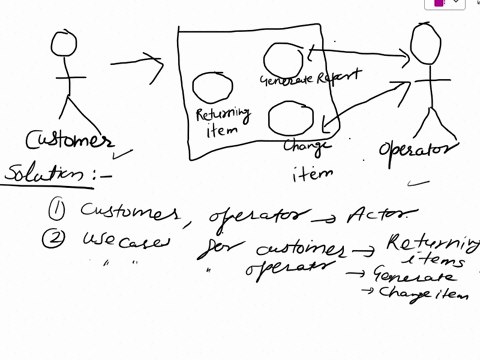 Generate Report
Returning
item
Customer
Change
item
operator
Solution :-
① Customer, operator → Actor.
② Usecases for customer → Returning
items
" " " operator → Generate
→ Change item